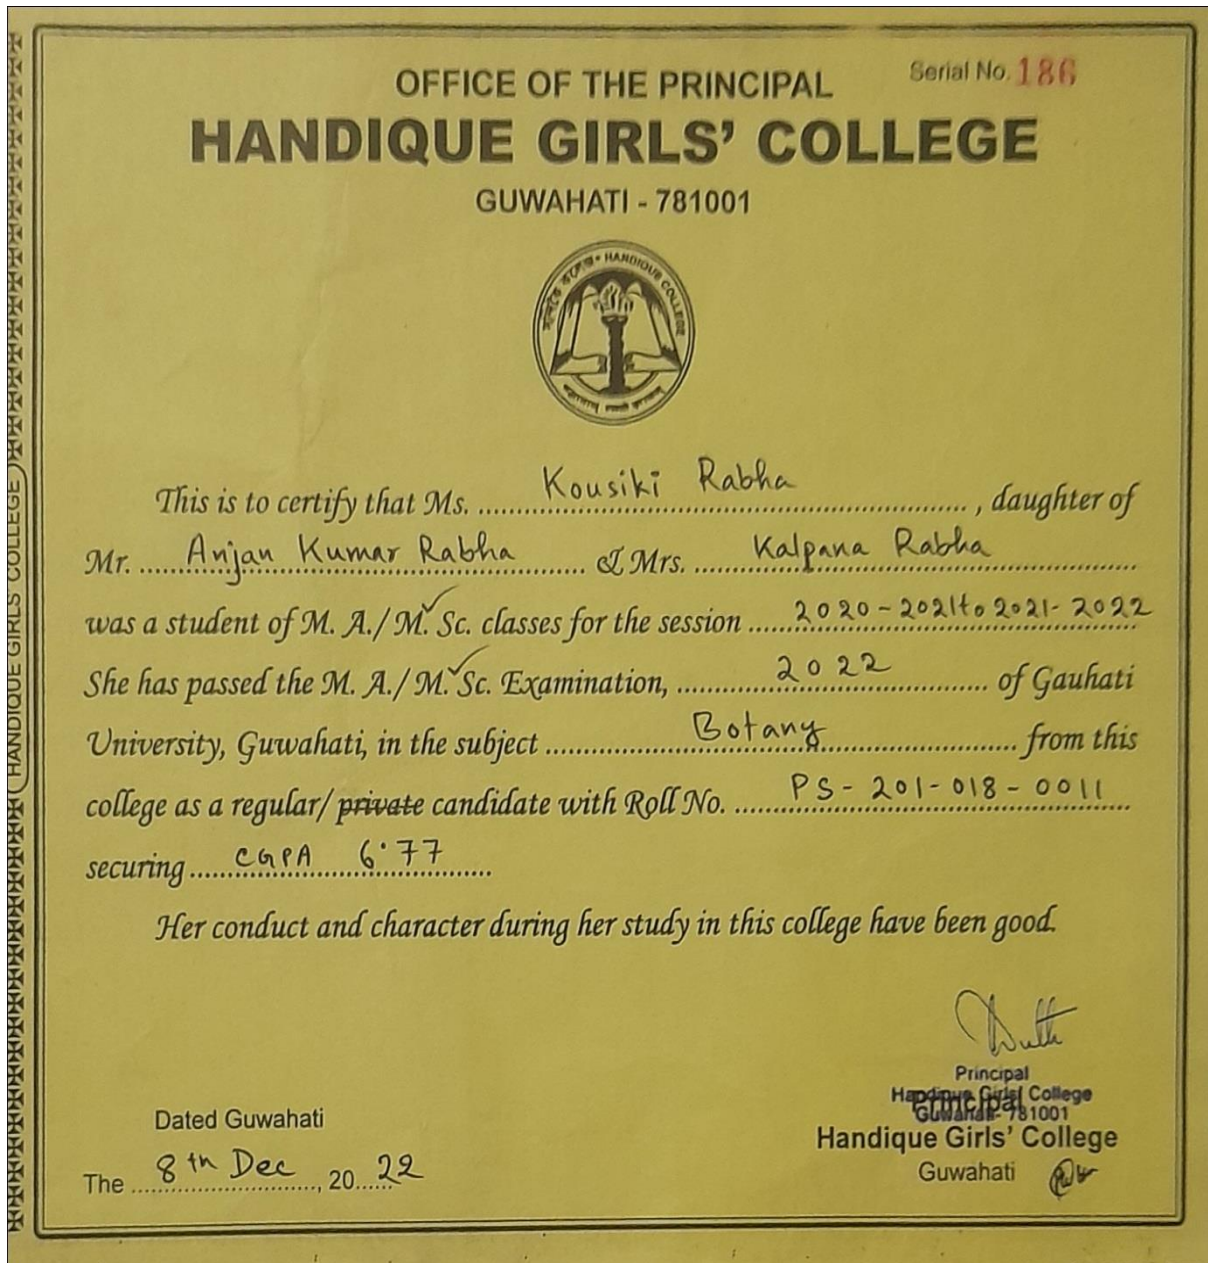 Serial No. 186
OFFICE OF THE PRINCIPAL
HANDIQUE GIRLS' COLLEGE
GUWAHATI - 781001
HANDIQUE COLLEGE
This is to certify that Ms. Kousiki Rabha, daughter of
Mr. Anjan Kumar Rabha & Mrs. Kalpana Rabha
was a student of M. A./ M. Sc. classes for the session 2020-2021 to 2021-2022
She has passed the M. A./ M. Sc. Examination, 2022 of Gauhati
University, Guwahati, in the subject Botany from this
college as a regular/ private candidate with Roll No. PS-201-018-0011
securing CGPA 6.77
Her conduct and character during her study in this college have been good.
Principal
Handique Girls' College
Guwahati- 781001
Principal
Handique Girls' College
Guwahati
Dated Guwahati
The 8th Dec, 2022
HANDIQUE GIRLS COLLEGE